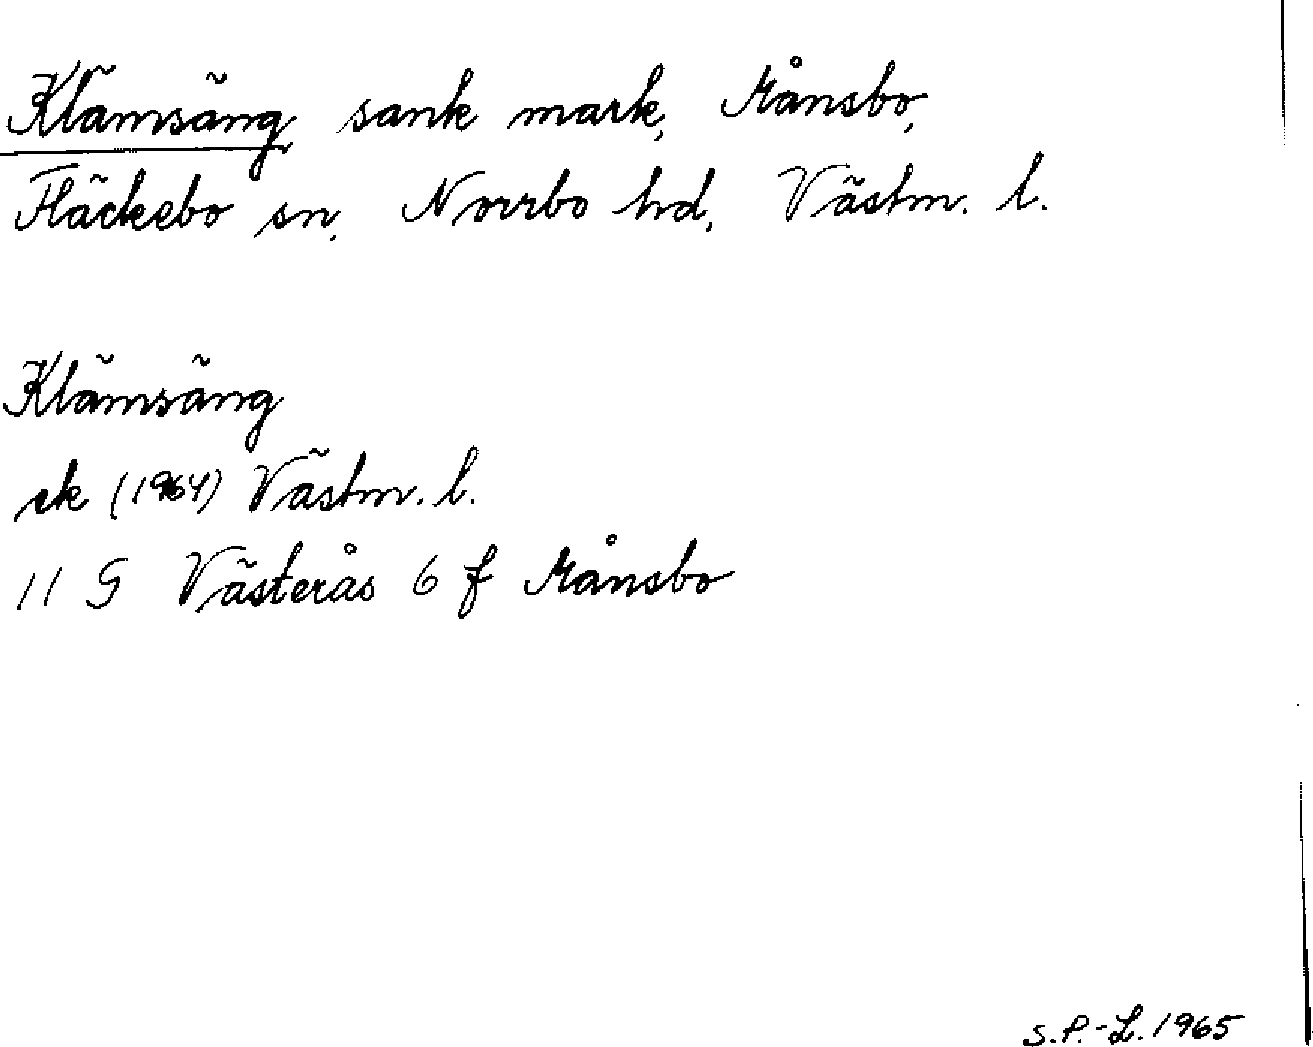 Klämsäng sank mark, Månsbo,
Fläckebo sn, Norrbo hd, Västm. l.
Klämsäng
ek (1964) Västm. l.
11 G Västerås 6 f Månsbo
S.P.-L. 1965